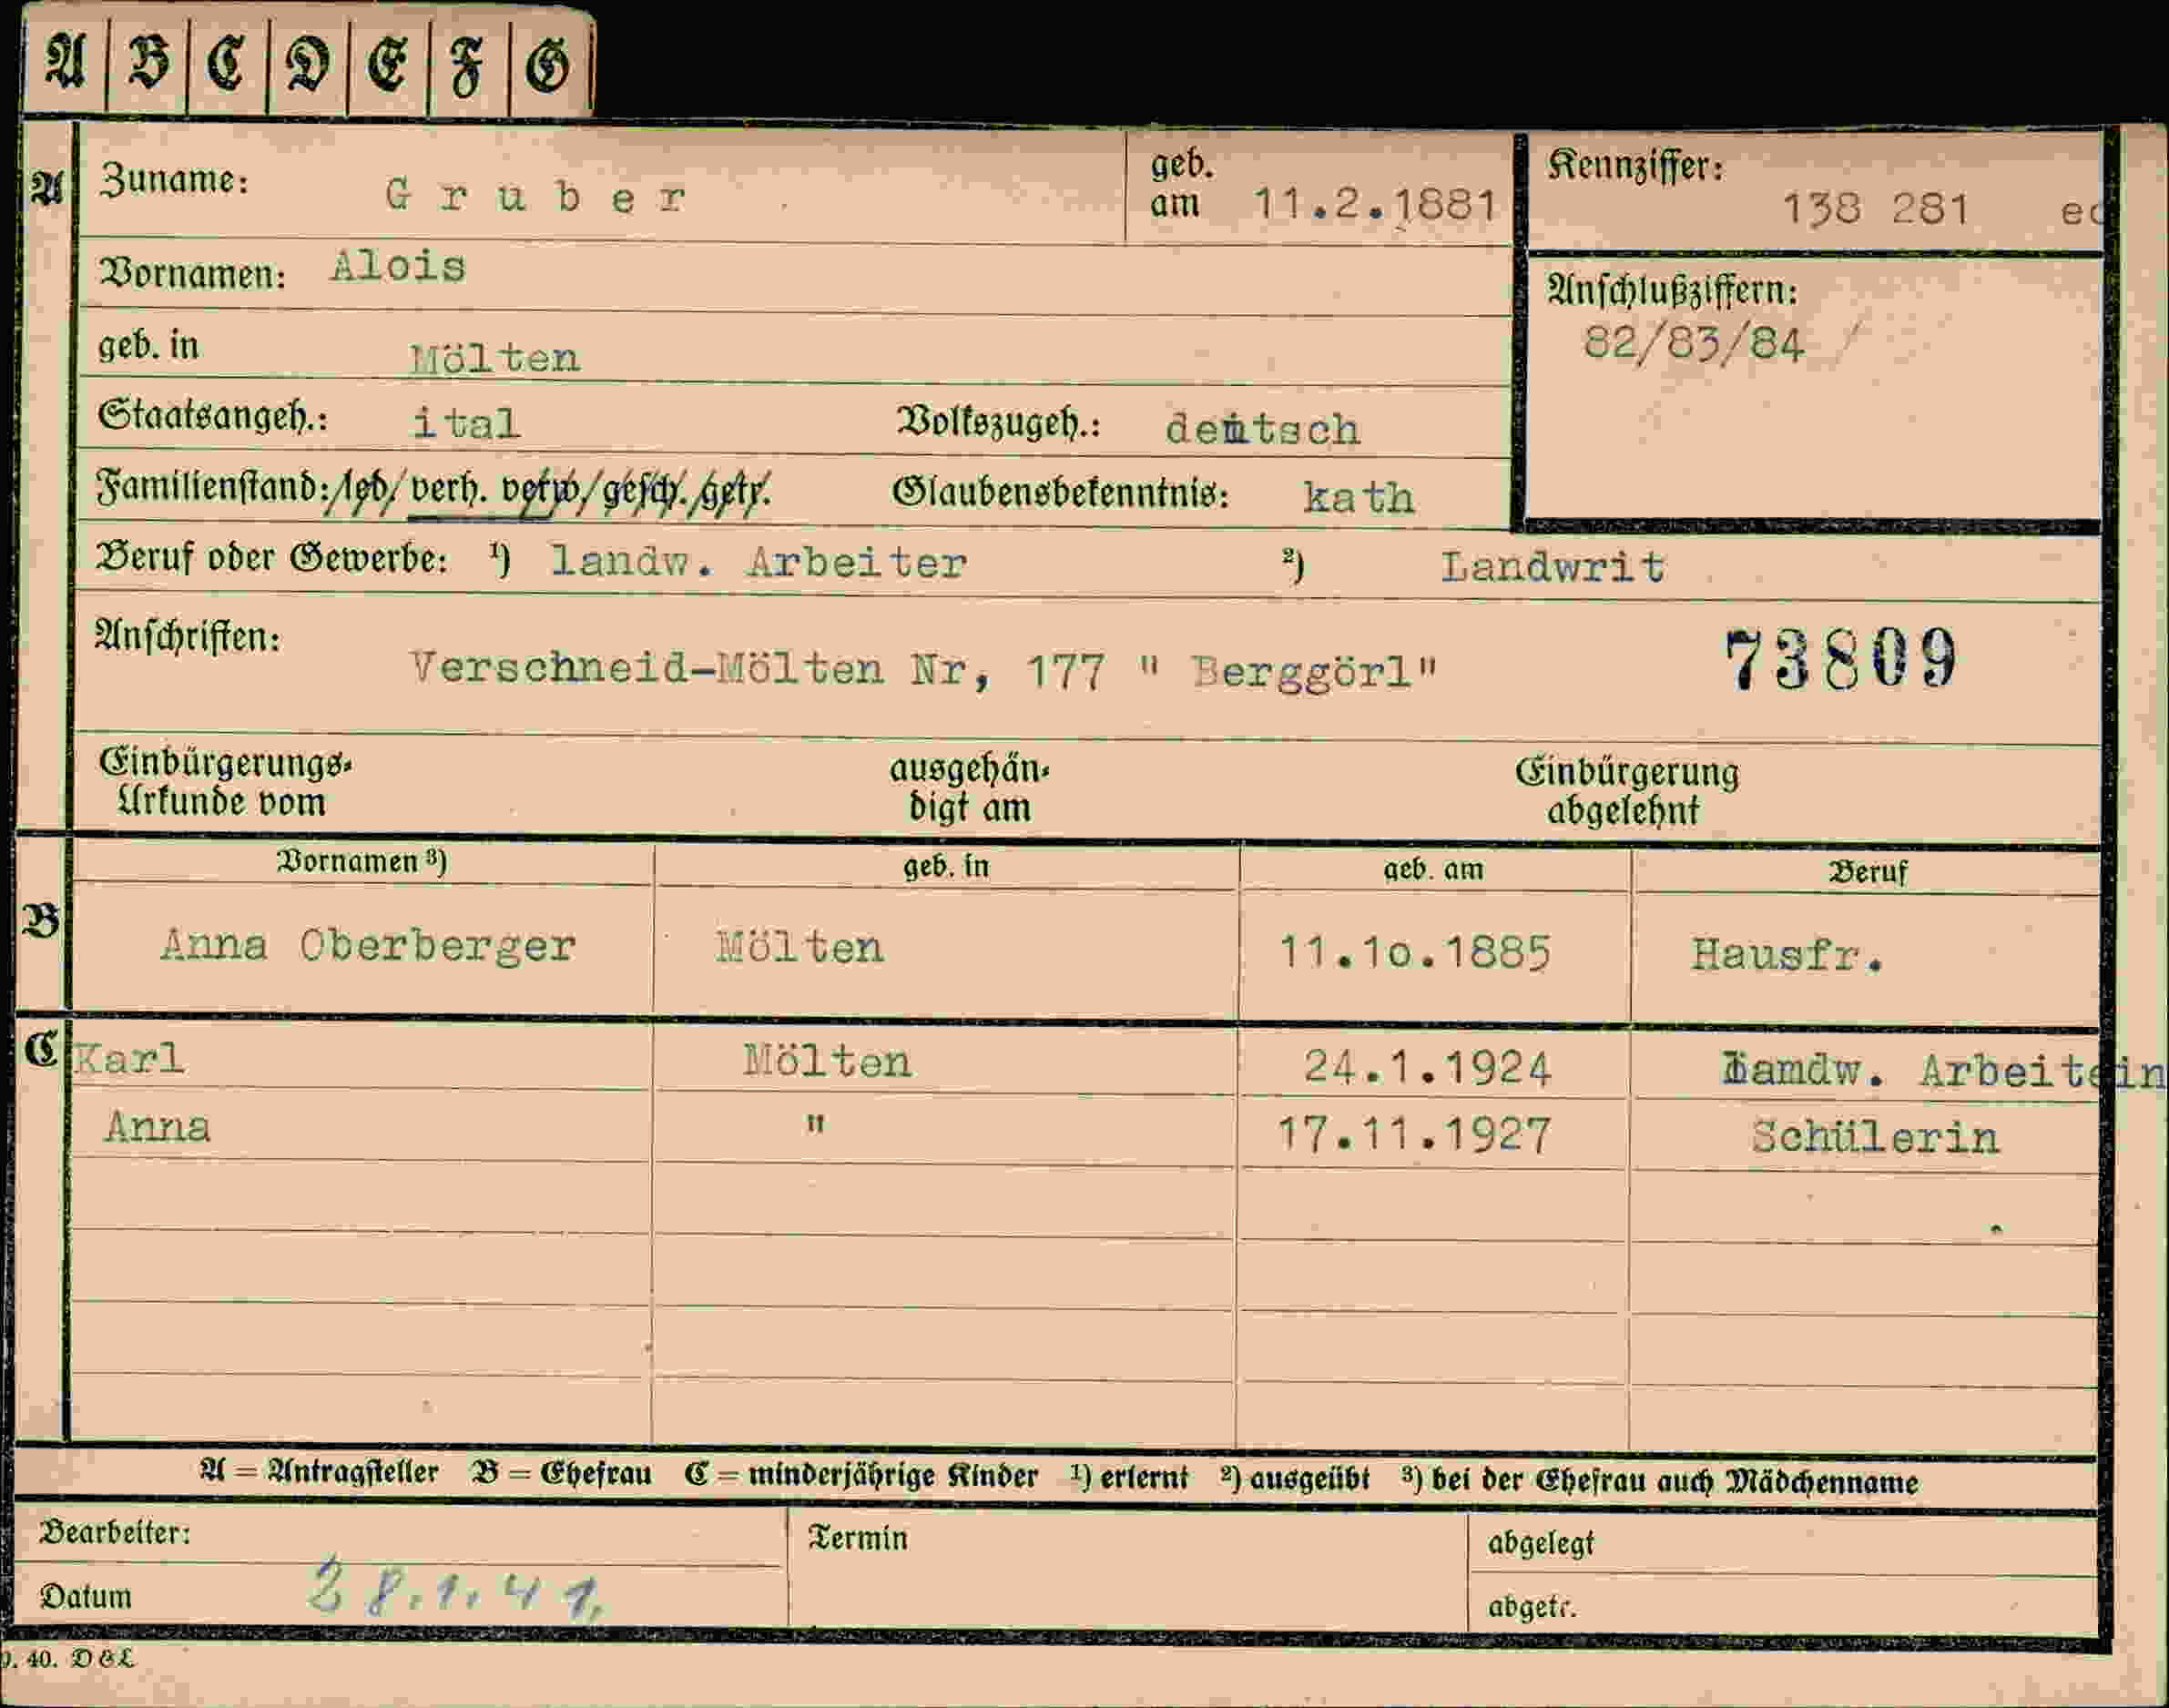 A B C D E F G
A Zuname: Gruber geb. am 11.2.1881 Kennziffer: 138 281
Vornamen: Alois Anschlußziffern:
82/83/84 /
geb. in Mölten
Staatsangeh.: ital Volkszugeh.: deutsch
Familienstand: led/ verh. verw/gesch./getr. Glaubensbekenntnis: kath
Beruf oder Gewerbe: ¹) landw. Arbeiter ²) Landwrit
Anschriften: Verschneid-Mölten Nr, 177 " Berggörl" 73809
Einbürgerungs- ausgehän- Einbürgerung
Urkunde vom digt am abgelehnt
Vornamen ³) geb. in geb. am Beruf
B Anna Oberberger Mölten 11.10.1885 Hausfr.
C Karl Mölten 24.1.1924 Lamdw. Arbeitein
Anna " 17.11.1927 Schülerin
A = Antragsteller B = Ehefrau C = minderjährige Kinder ¹) erlernt ²) ausgeübt ³) bei der Ehefrau auch Mädchenname
Bearbeiter: Termin abgelegt
Datum 28.1.41. abgetr.
40. D&L